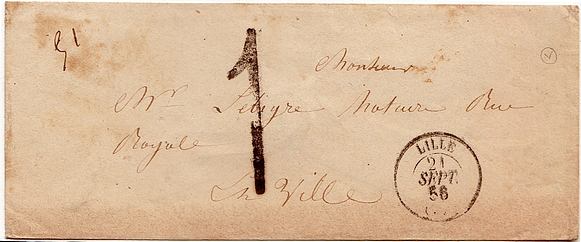 1
Monsieur
Mr Lebigre Notaire Rue
Royale
En Ville
LILLE
21
SEPT.
56